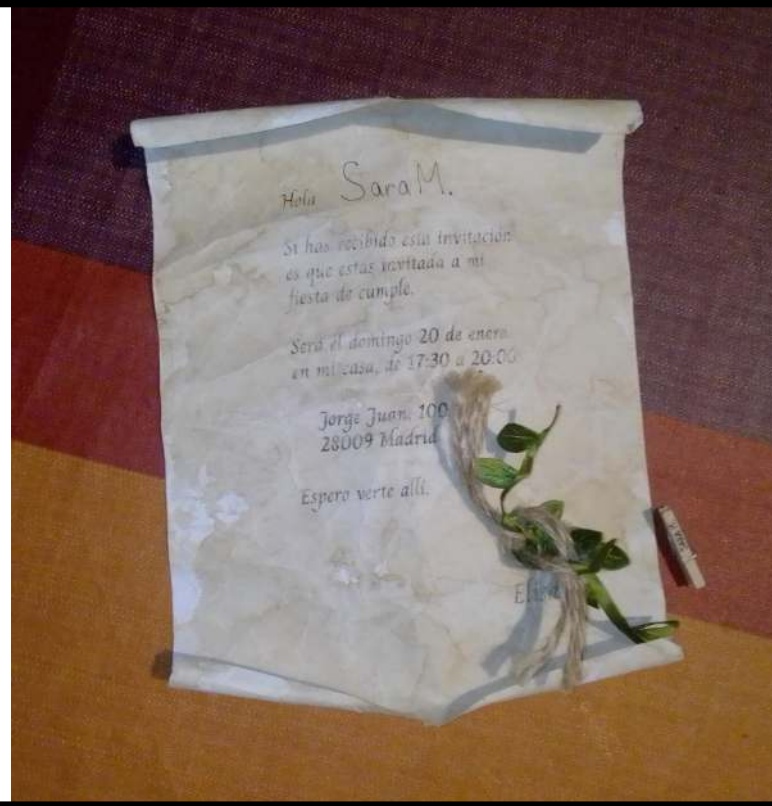 Hola Sara M.
Si has recibido esta invitación
es que estás invitada a mi
fiesta de cumple.
Será el domingo 20 de enero
en mi casa, de 17:30 a 20:00
Jorge Juan, 100
28009 Madrid
Espero verte allí.